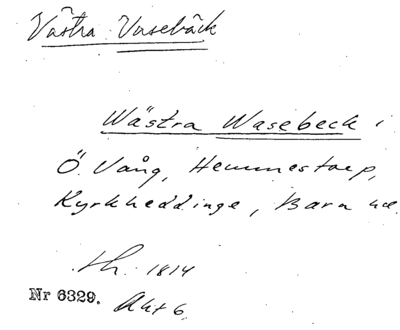 Västra Vasebäck
Wästra Wasebeck i
Ö. Vång, Hemmestorp,
Kyrkheddinge, Bara hd.
1814
Nr 6329. Akt 6